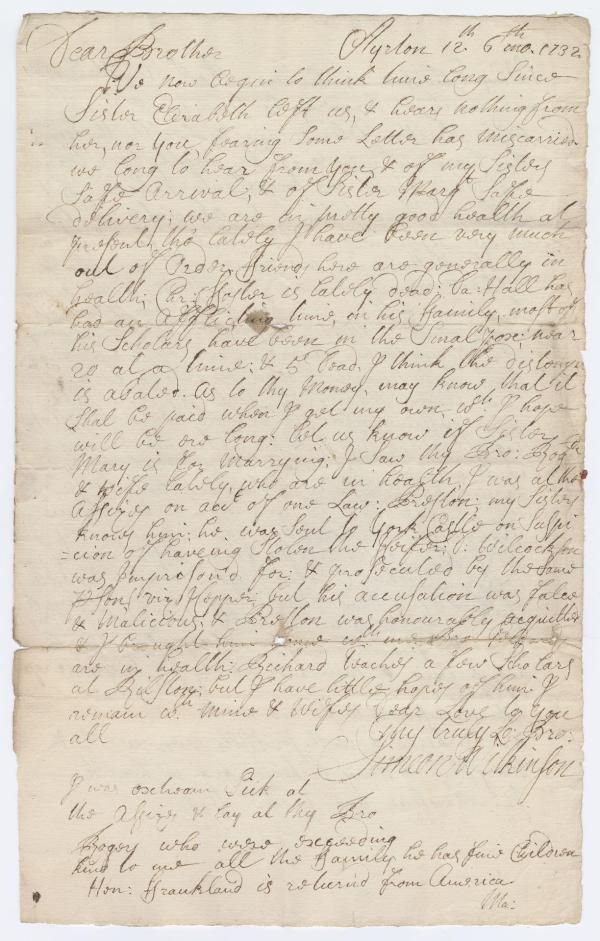 Dear Brother Ayrton 12th 6th mo. 1732
We now begin to think time long Since
Sister Elizabeth left us, & hears nothing from
her, nor you, fearing Some Letter has miscarried
we long to hear from you & of my Sisters
Safe Arrival, & of Sister Mary Safe
delivery; we are in pretty good health at
present, tho' lately I have been very much
out of Order, ffriends here are generally in
health; is lately dead; Hall has
had an afflicting time, in his ffamily, most of
his Scholars have been in the Smal pox; near
20 at a time; & 5 Dead. I think the distemper
is abated. As to thy Money, may know, that it
Shal be paid when I get my own, wch I hope
will be ere long: let us know if Sister
Mary is for Marrying; I Saw thy Bro: Rogr
& wife lately, who are in health, I was at the
Assizes on acct of one Law: Preston; my Sisters
knows him; he was Sent to York Castle on Suspi
=cion of haveing Stolen the Heifer; Wilcockson
was Imprison'd for; & prosecuted by the Same
viz Hepper; but his accusation was false
& Malicious, & Preston was honourably acquitted
& I brought him home wth me, Bro
are in health: Richard teaches a few Scholars
at but I have little hopes of him; I
remain wth mine & Wifes Dear Love to you
all thy truly Lo: Bro:
Simeon Wilkinson
I was Sick at
the Assizes & lay at thy Bro
Rogers who were exceeding
kind to me all the ffamily, he has fine Children
Hen: ffrankland is return'd from America
Ma: